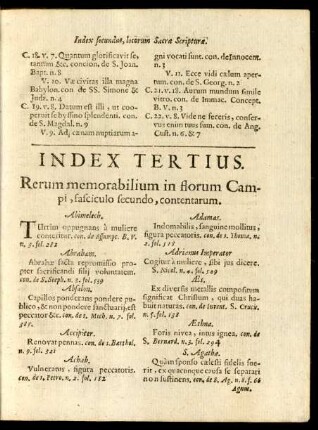 Index secundus, locorum Sacræ Scripturæ.
C. 18. v. 7. Quantum glorificavit se,
tantum &c. concion. de S. Joan.
Bapt. n. 8
V. 20. Væ civitas illa magna
Babylon. con. de SS. Simone &
Juda. n. 4
C. 19. v. 8. Datum est illi, ut coo-
periat se byssino splendenti. con.
de S. Magdal. n. 9
V. 9. Ad cænam nuptiarum a-
gni vocati sunt. con. de Innocem.
n. 3
V. 11. Ecce vidi cælum aper-
tum. con. de S. Georg. n. 2
C. 21. v. 18. Aurum mundum simile
vitro. con. de Immac. Concept.
B. V. n. 3
C. 22. v. 8. Vide ne feceris, conser-
vus enim tuus sum. con. de Ang.
Cust. n. 6. & 7
INDEX TERTIUS.
Rerum memorabilium in florum Cam-
pi, fasciculo secundo, contentarum.
Abimelech.
Turrim oppugnans à muliere
conteritur. con. de B. V.
n. 3. fol. 282
Abraham.
Abrahæ facta repromissio pro-
pter sacrificandi filij voluntatem.
con. de S. Steph. n. 5. fol. 539
Absalon.
Capillos ponderans pondere pu-
blico, & non pondere sanctuarij, est
peccator &c. con. de S. Mich. n. 7. fol.
Accipiter.
Renovat pennas. con. de S. Barthol.
n. 9. fol. 321
Achab.
Vulneratus, figura peccatoris.
con. de S. Petro. n. 2. fol. 152
Adamas.
Indomabilis, sanguine mollitus,
figura peccatoris. con. de S. Thoma. n.
2. fol.
Adrianus Imperator
Cogitur à muliere, sibi jus dicere.
S. Nicol. n. 4. fol. 509
Æs.
Ex diversis metallis compositum
significat Christum, qui duas ha-
buit naturas. con. de Invent. S. Crucis.
n. 5. fol.
Æthna.
Foris nivea, intus ignea. con. de
S. Bernard. n. 3. fol. 294
S. Agatha.
Quàm sponso cælesti fidelis fue-
rit, ex quacunque causa se separari
non sustinens. con. de S. Ag. n. 8. f. 66
Agnus.